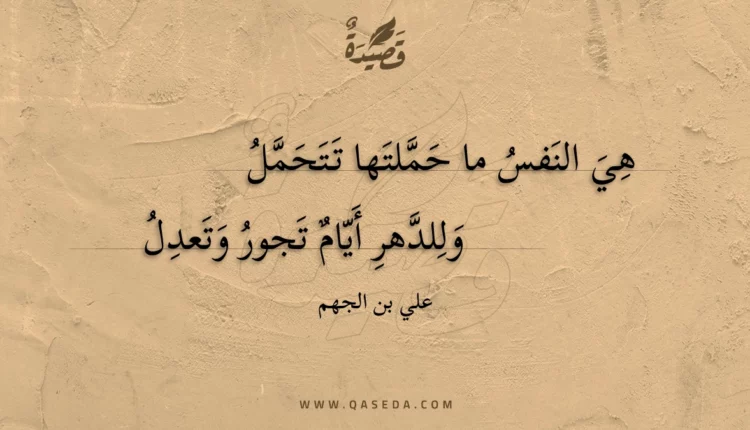 قَصِيْدَةٌ
هِيَ النَفسُ ما حَمَّلتَها تَتَحَمَّلُ
وَلِلدَّهرِ أَيّامٌ تَجورُ وَتَعدِلُ
علي بن الجهم
WWW.QASEDA.COM